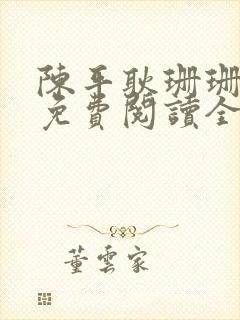 陳平耿珊珊
免費閱讀全
董雲家